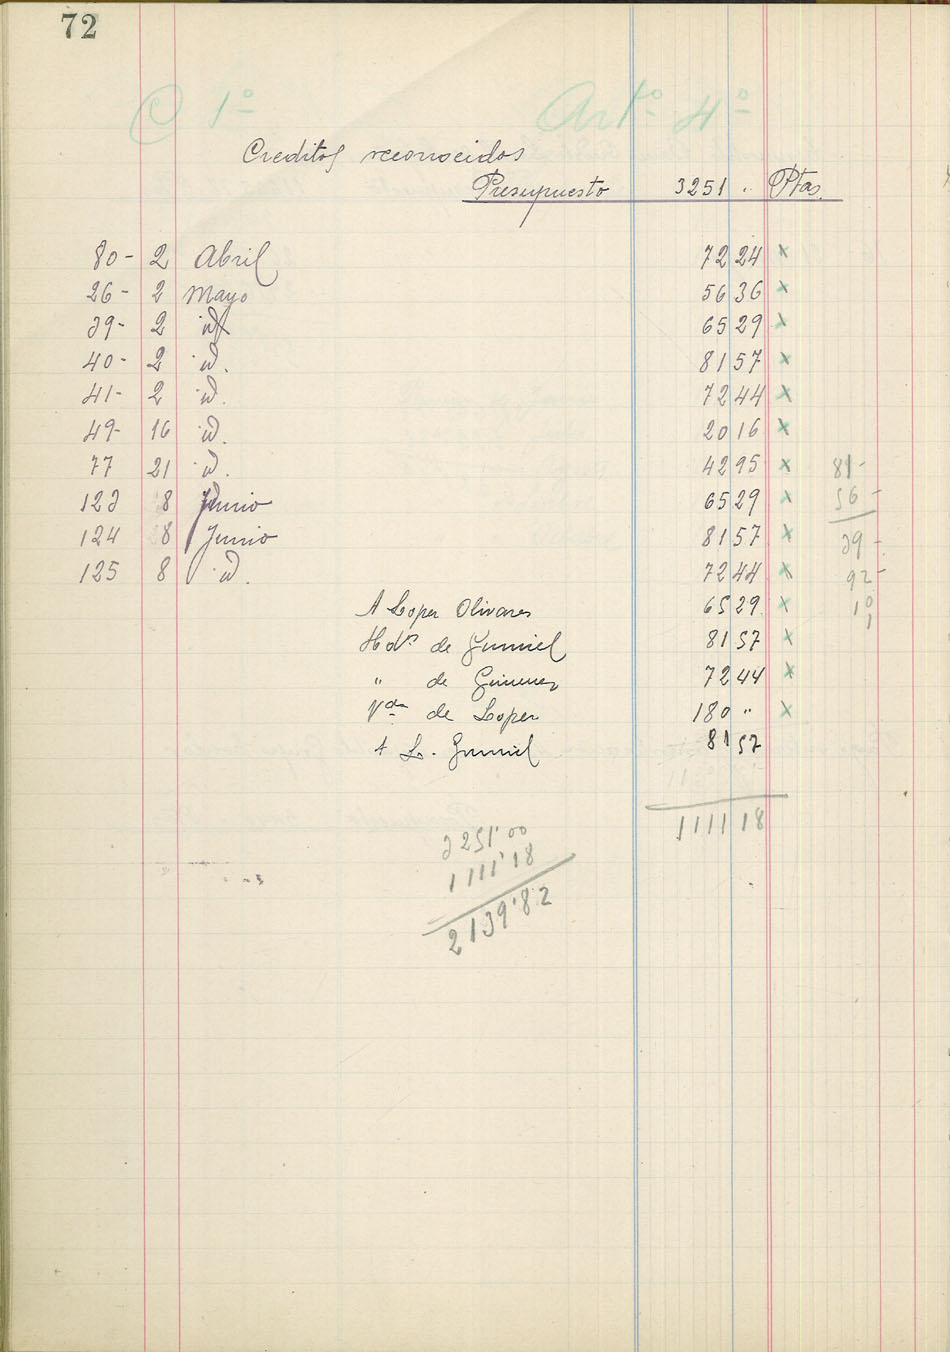 72
C 1º Artº 4º
Creditos reconocidos
Presupuesto 3251 " Ptas.
80- 2 Abril 72 24 x
26- 2 Mayo 56 36 x
39- 2 id 65 29 x
40- 2 id. 81 57 x
41- 2 id. 72 44 x
49- 16 id. 20 16 x
77 21 id. 42 95 x 81-
123 8 Junio 65 29 x 56-
124 8 Junio 81 57 x 39-
125 8 id. 72 44 x 92-
A Loper Olivares 65 29 x 10
1
Hdºs de Jumiel 81 57 x
" de Gimenez 72 44 x
Vda de Loper 180 " x
A L. Jumiel 81 57
1111 18
3251'00
1111'18
2139'82